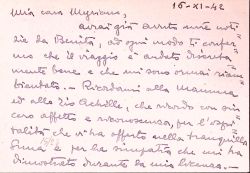 16-XI-42
Mia cara Myriam,
avrai già avuto mie noti-
zie da Benito, ad ogni modo ti confer-
mo che il viaggio è andato discreta-
mente bene e che mi sono ormai riam-
bientato. - Ricordami alla Mamma
ed allo Zio Achille, che ricordo con sin-
cero affetto e riconoscenza, per l'ospi-
talità che mi ha offerto nella tranquilla
e per la simpatia che mi ha
dimostrato durante la mia licenza. -